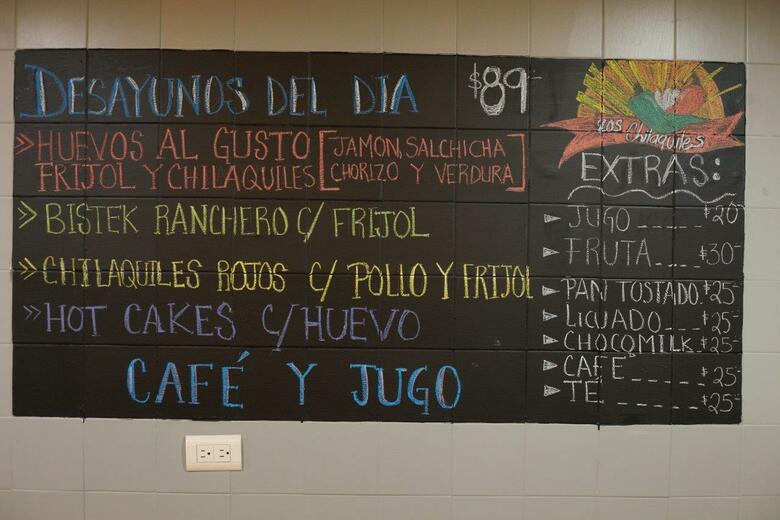 DESAYUNOS DEL DIA $89-
» HUEVOS AL GUSTO
FRIJOL Y CHILAQUILES
[JAMON, SALCHICHA
CHORIZO Y VERDURA]
» BISTEK RANCHERO C/ FRIJOL
» CHILAQUILES ROJOS C/ POLLO Y FRIJOL
» HOT CAKES C/HUEVO
CAFÉ Y JUGO
Los Chilaquiles
EXTRAS:
JUGO _____ $20-
FRUTA____ $30-
PAN TOSTADO. $25-
LICUADO___ $25-
CHOCOMILK. $25-
CAFE _____ $25-
TE _______ $25-